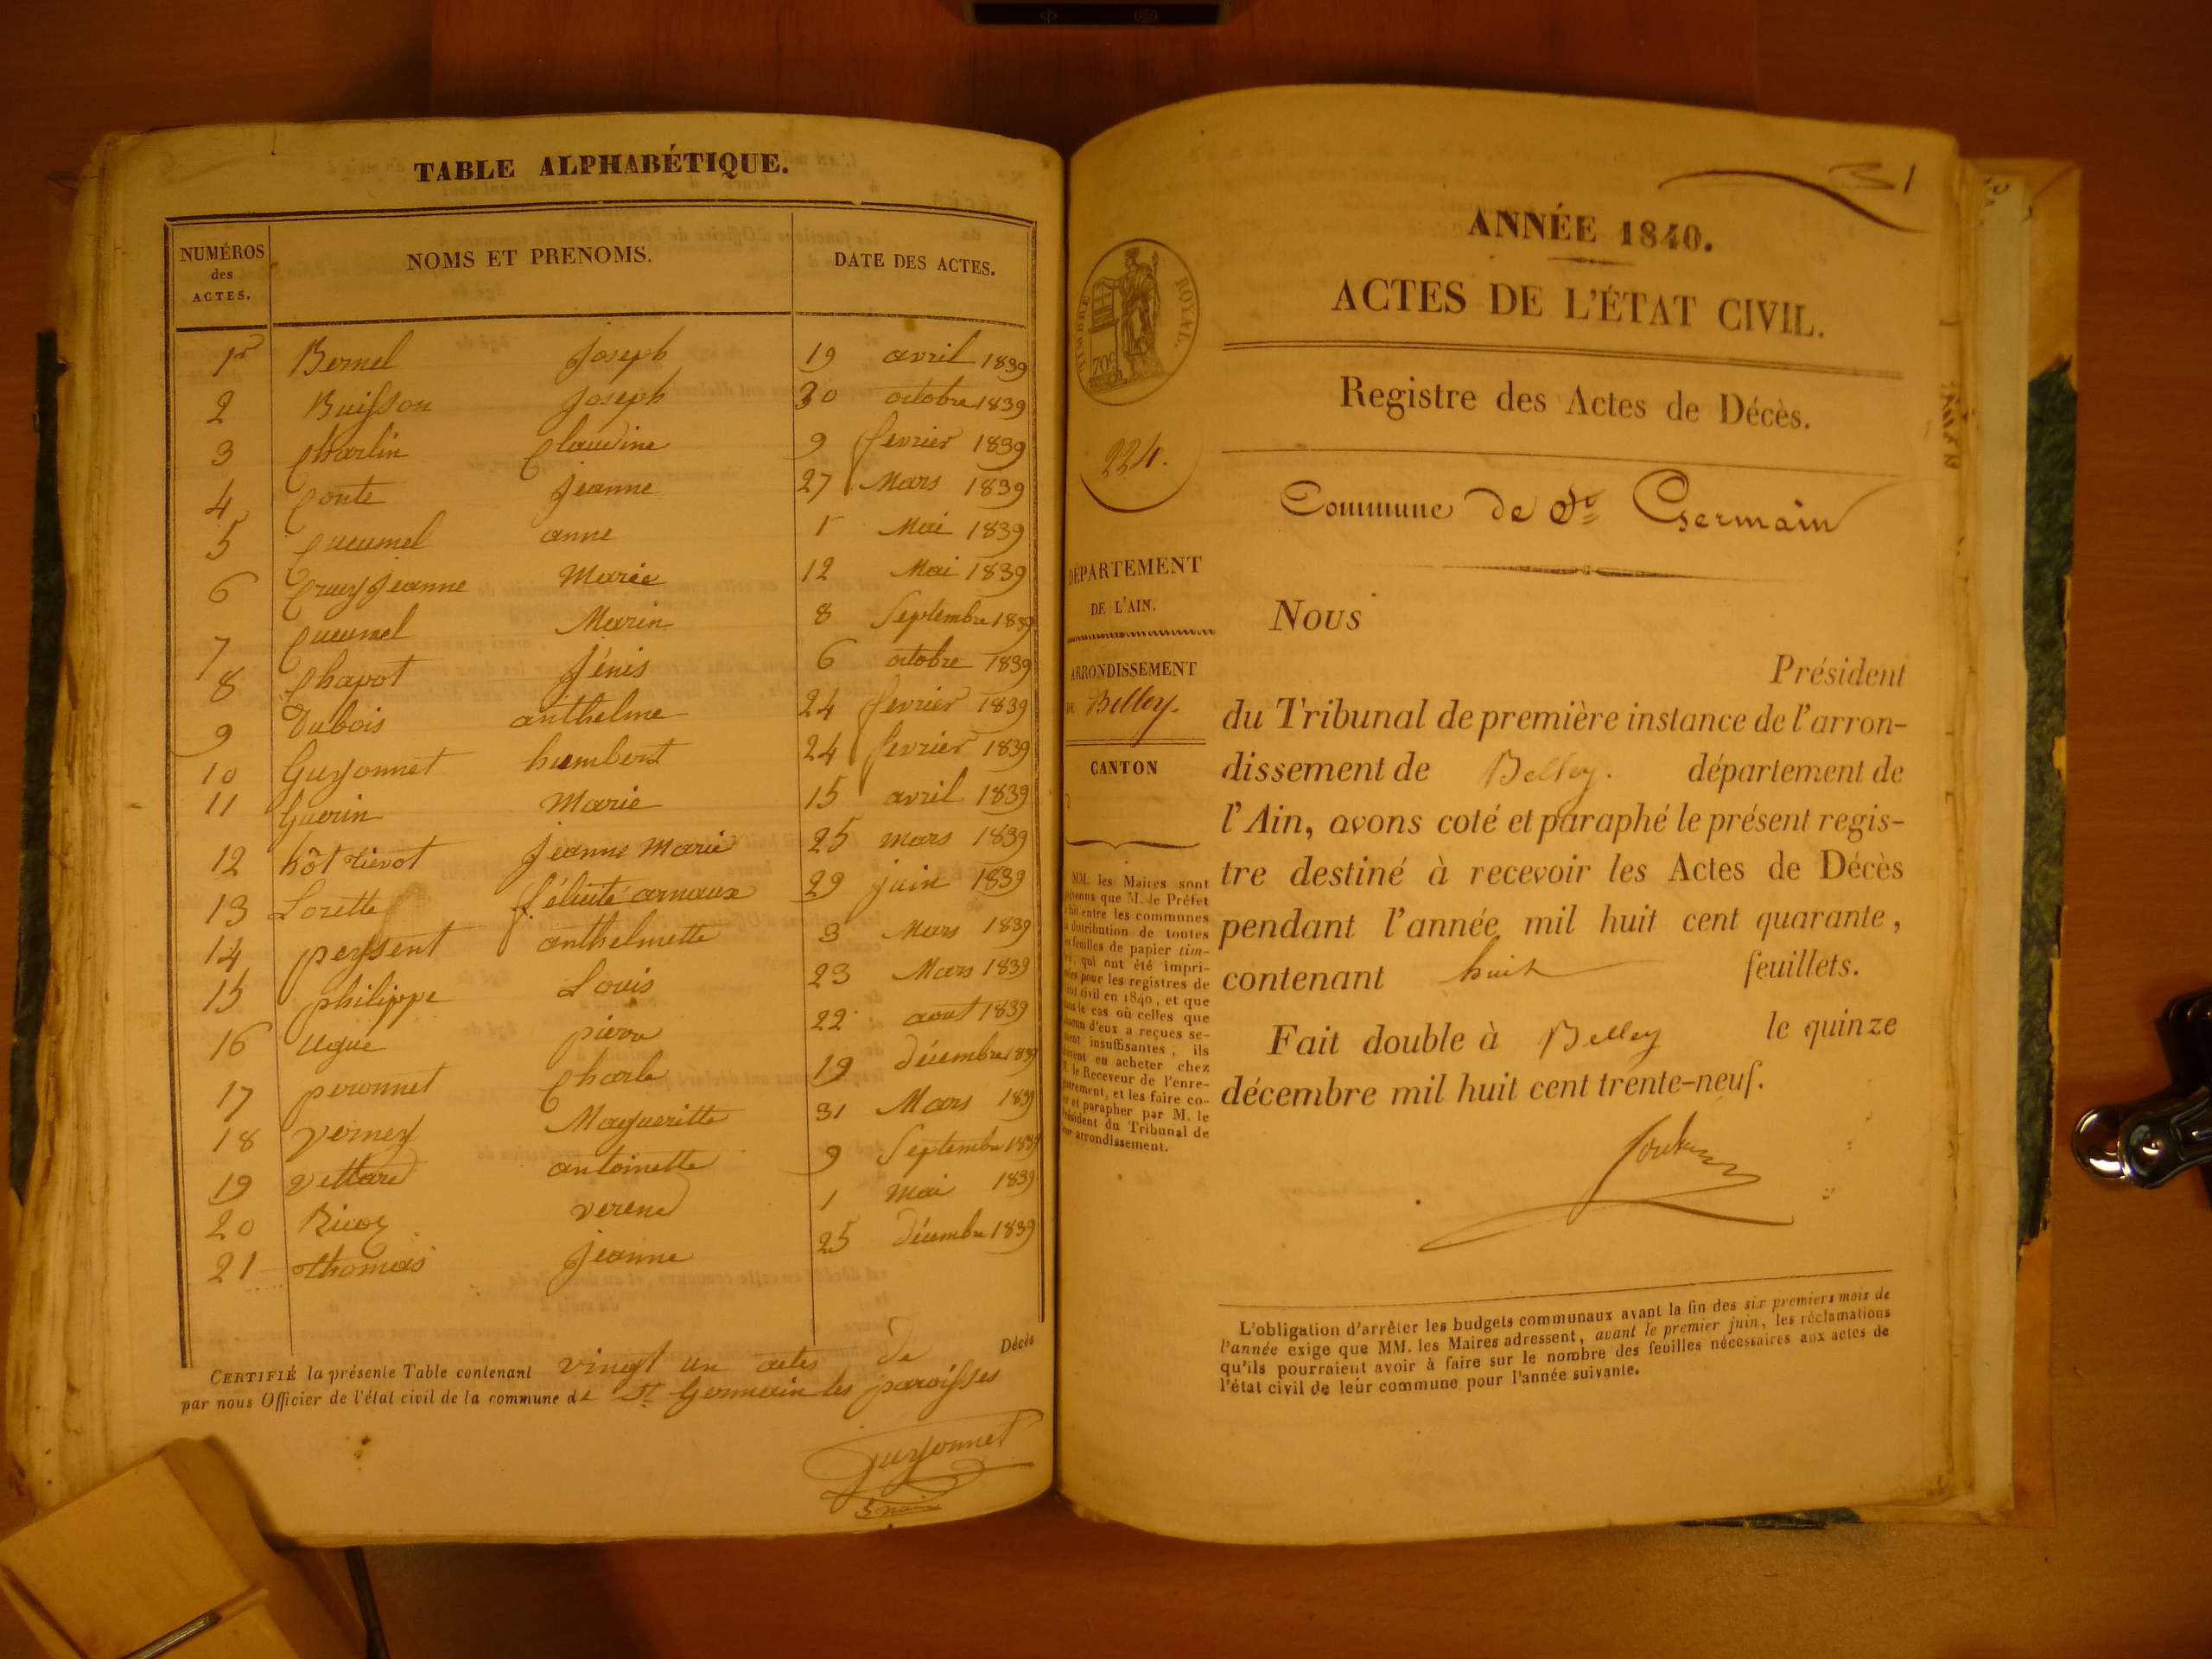 TABLE ALPHABÉTIQUE.
NUMÉROS des ACTES. NOMS ET PRENOMS. DATE DES ACTES.
1r Bernel Joseph 19 avril 1839
2 Buisson Joseph 30 octobre 1839
3 Charlin Claudine 9 fevrier 1839
4 Conte Jeanne 27 Mars 1839
5 Cucumel anne 1r Mai 1839
6 Jeanne Marie 12 Mai 1839
7 Cucumel Marin 8 Septembre 1839
8 Chapot Jénis 6 octobre 1839
9 Dubois anthelme 24 fevrier 1839
10 Guyonnet humbert 24 fevrier 1839
11 Guerin Marie 15 avril 1839
12 Jeanne Marie 25 mars 1839
13 Lorette félicité arnaux 29 juin 1839
14 peysent anthelmette 3 Mars 1839
15 philippe Louis 23 Mars 1839
16 pierre 22 aout 1839
17 peronnet Charle 19 décembre 1839
18 verney Margueritte 31 Mars 1839
19 vettard antoinette 9 Septembre 1839
20 verene 1 mai 1839
21 thomas Jeanne 25 décembre 1839
CERTIFIÉ la présente Table contenant vingt un actes de Décès
par nous Officier de l'état civil de la commune de St Germain les paroisses
Guyonnet
31
ANNÉE 1840.
ACTES DE L'ÉTAT CIVIL.
TIMBRE ROYAL.
70c
Registre des Actes de Décès.
224.
Commune de St Germain
DÉPARTEMENT
DE L'AIN.
ARRONDISSEMENT
DE Belley.
CANTON
MM. les Maires sont
prévenus que M. le Préfet
fait entre les communes
la distribution de toutes
les feuilles de papier tim-
bré, qui ont été impri-
mées pour les registres de
l'état civil en 1840, et que
dans le cas où celles que
chacun d'eux a reçues se-
raient insuffisantes, ils
doivent en acheter chez
M. le Receveur de l'enre-
gistrement, et les faire co-
ter et parapher par M. le
Président du Tribunal de
leur arrondissement.
Nous
Président
du Tribunal de première instance de l'arron-
dissement de Belley. département de
l'Ain, avons coté et paraphé le présent regis-
tre destiné à recevoir les Actes de Décès
pendant l'année mil huit cent quarante,
contenant huit feuillets.
Fait double à Belley le quinze
décembre mil huit cent trente-neuf.
L'obligation d'arrêter les budgets communaux avant la fin des six premiers mois de
l'année exige que MM. les Maires adressent, avant le premier juin, les réclamations
qu'ils pourraient avoir à faire sur le nombre des feuilles nécessaires aux actes de
l'état civil de leur commune pour l'année suivante.